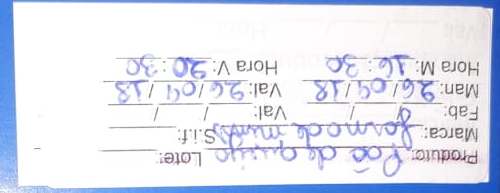 Produto: Pão de queijo Lote:
Marca: forma de minas S.i.f:
Fab: / / Val: / /
Man: 26/04/18 Val: 26/04/18
Hora M: 16:30 Hora V: 20:30